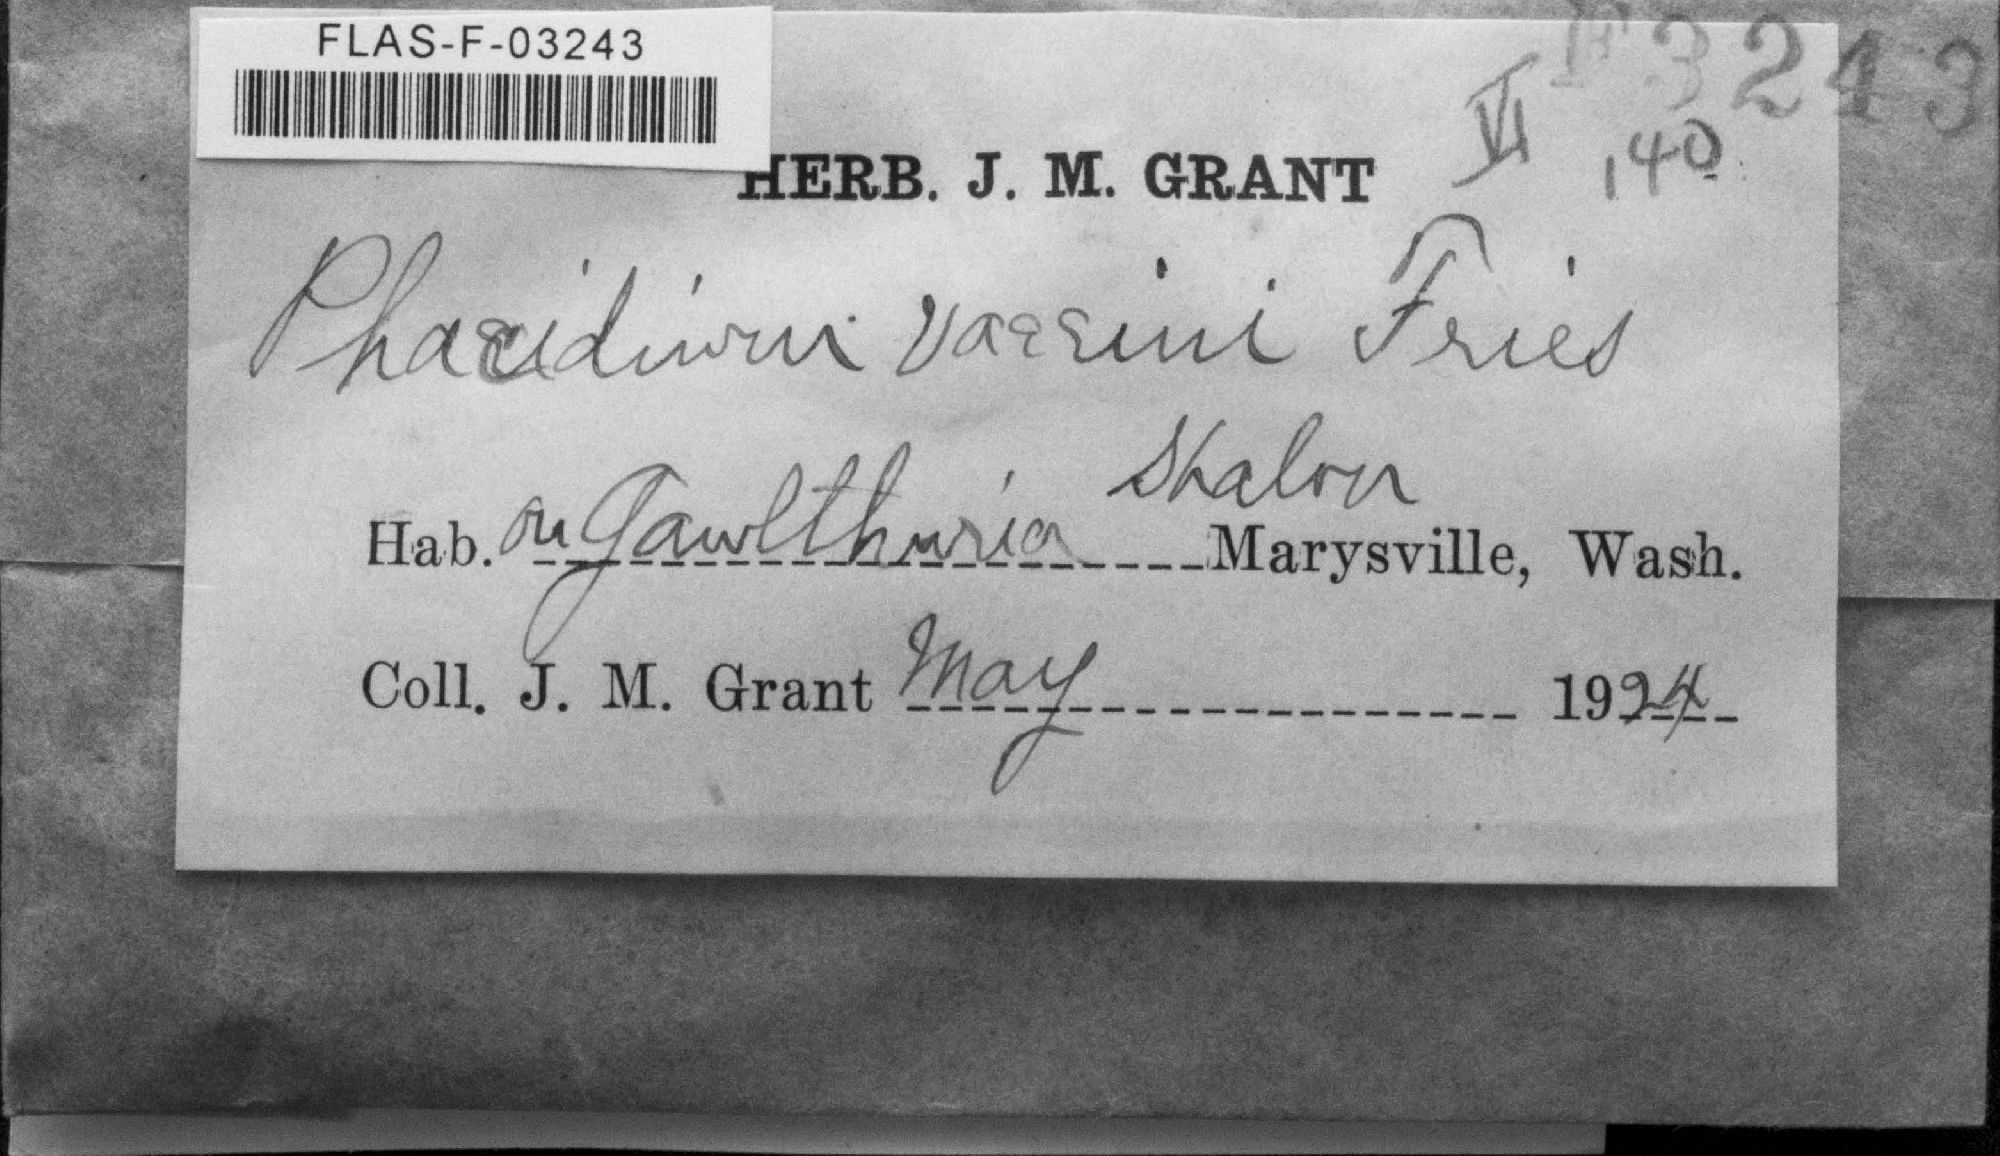 FLAS-F-03243
F 3243
VI 140
HERB. J. M. GRANT
Phacidium vaccini Fries
Hab. on Gawlthuria Shalon Marysville, Wash.
Coll. J. M. Grant May 1924